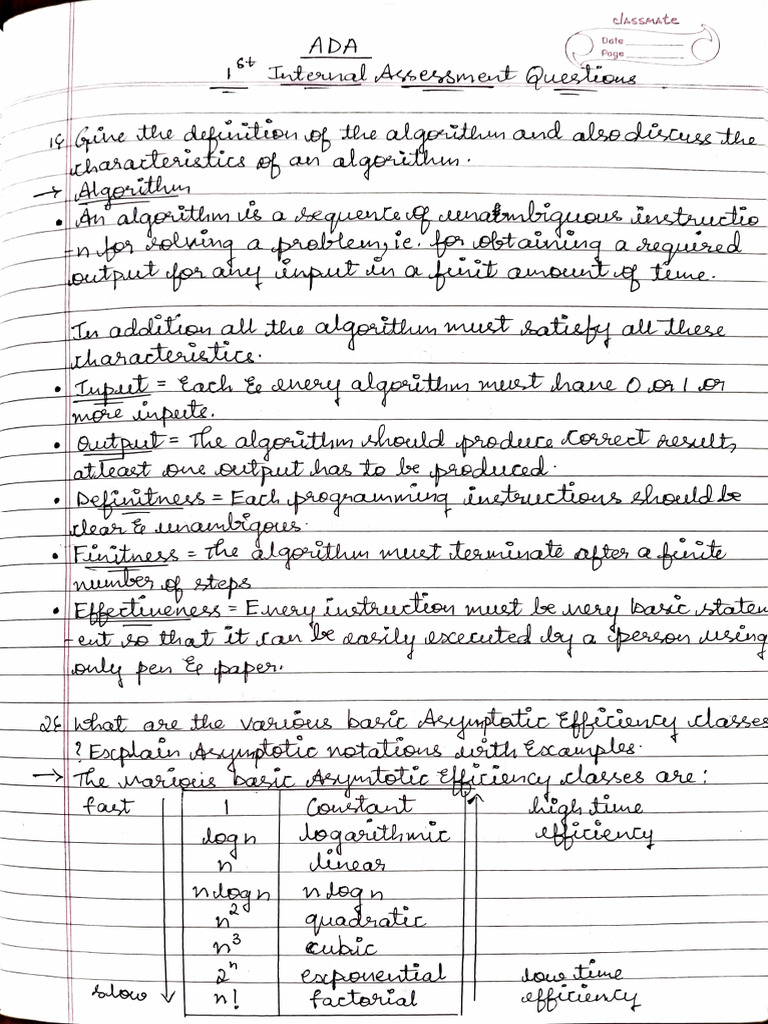 classmate
Date
Page
ADA
1st Internal Assessment Questions
1. Give the definition of the algorithm and also discuss the
characteristics of an algorithm.
→ Algorithm
• An algorithm is a sequence of unambiguous instructio
-n for solving a problem, ie. for obtaining a required
output for any input in a finit amount of time.
In addition all the algorithm must satisfy all these
characteristics.
• Input = Each & every algorithm must have 0 or 1 or
more inputs.
• Output = The algorithm should produce correct result,
atleast one output has to be produced.
• Definitness = Each programming instructions should be
clear & unambigous.
• Finitness = The algorithm must terminate after a finite
number of steps
• Effectiveness = Every instruction must be very basic statem
-ent so that it can be easily executed by a person using
only pen & paper.
2. What are the various basic Asymptotic Efficiency classes
? Explain Asymptotic notations with Examples.
→ The various basic Asymtotic Efficiency classes are:
fast ↓ 1 Constant ↑ high time
logn logarithmic efficiency
n linear
nlogn nlogn
n² quadratic
n³ cubic
2ⁿ exponential low time
slow n! factorial efficiency